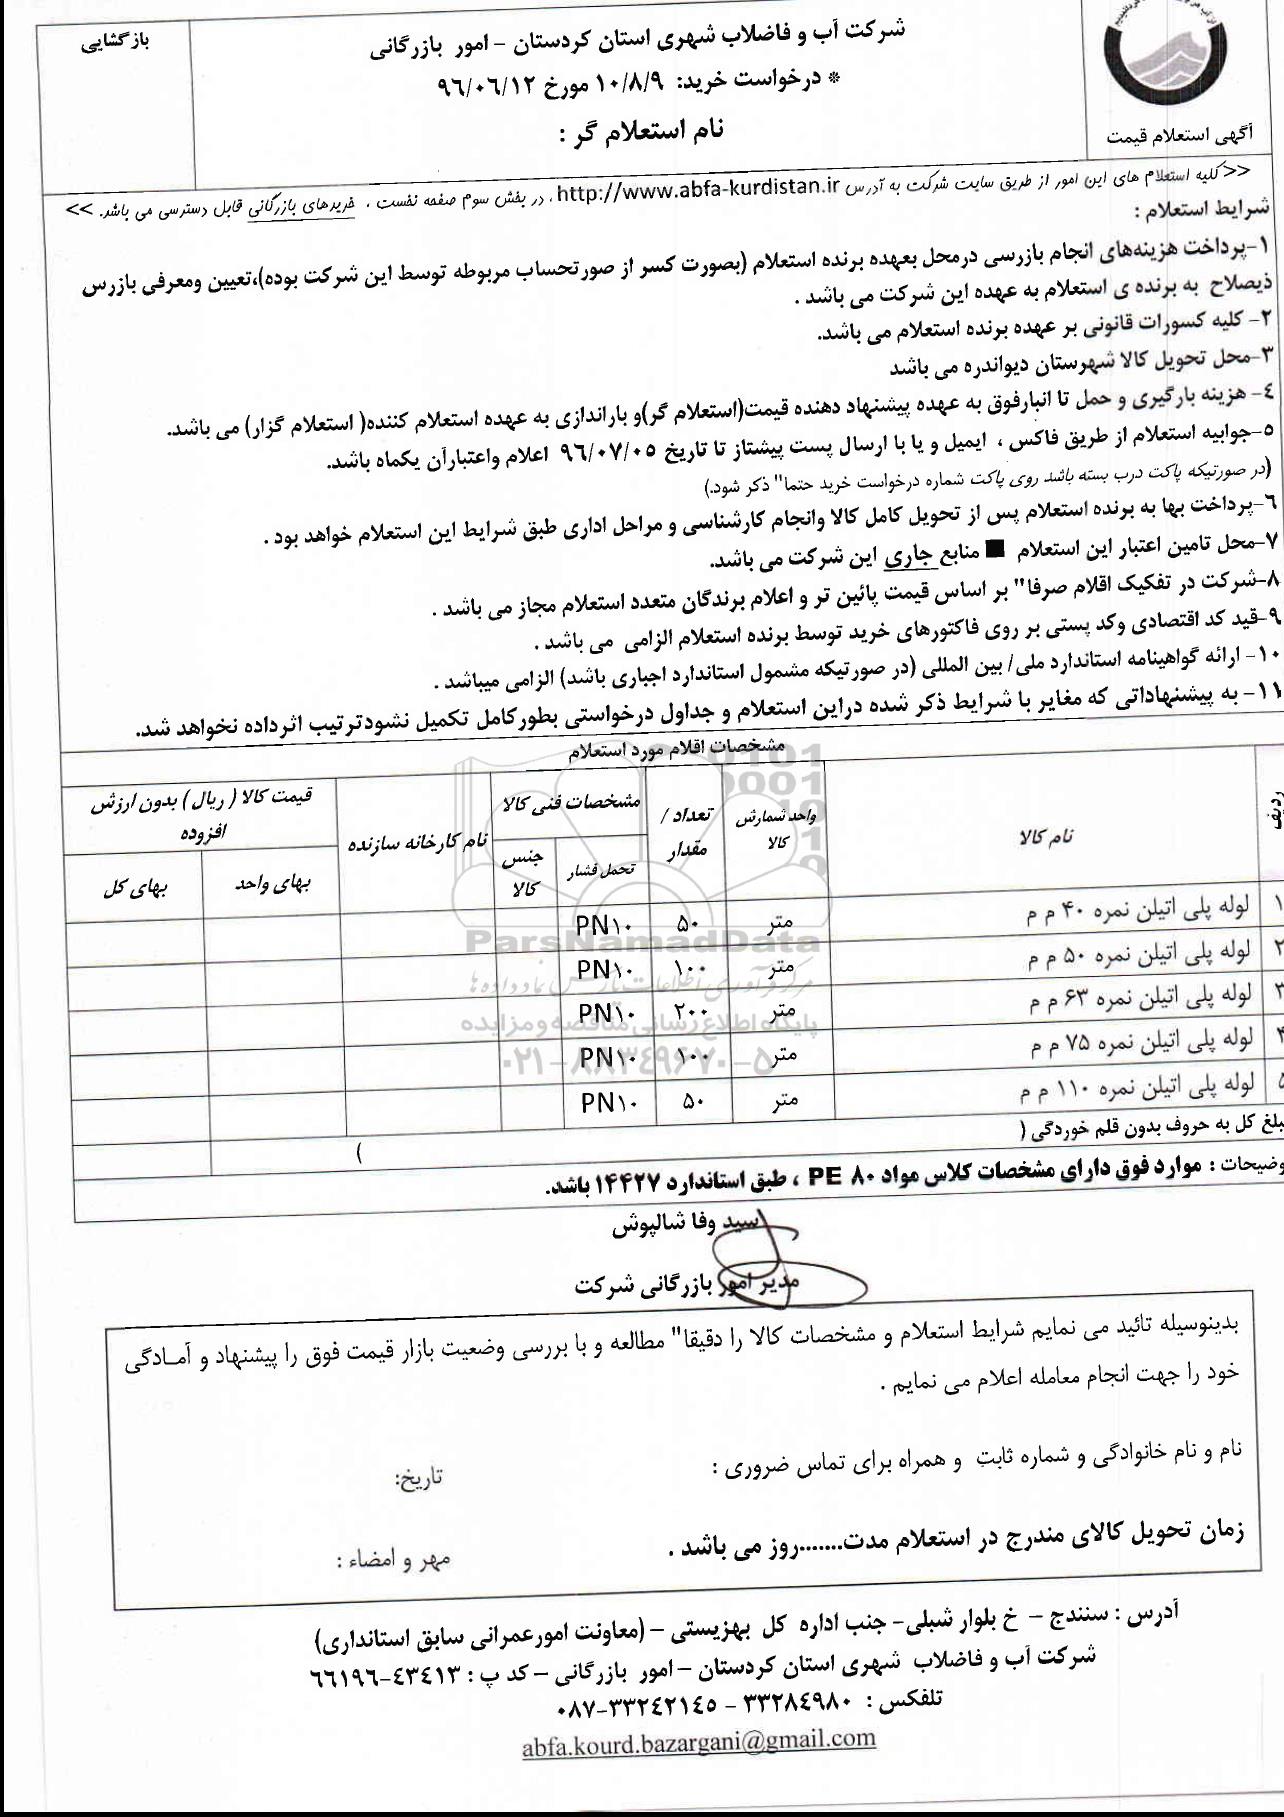 شرکت آب و فاضلاب شهری استان کردستان – امور بازرگانی
بازگشایی
* درخواست خرید: ۱۰/۸/۹ مورخ ۹۶/۰۶/۱۲
نام استعلام گر :
آگهی استعلام قیمت
<<کلیه استعلام های این امور از طریق سایت شرکت به آدرس http://www.abfa-kurdistan.ir ، در بخش سوم صفحه نخست ، خریدهای بازرگانی قابل دسترسی می باشد. >>
شرایط استعلام :
۱-پرداخت هزینه‌های انجام بازرسی درمحل بعهده برنده استعلام (بصورت کسر از صورتحساب مربوطه توسط این شرکت بوده)،تعیین ومعرفی بازرس
ذیصلاح به برنده ی استعلام به عهده این شرکت می باشد .
۲- کلیه کسورات قانونی بر عهده برنده استعلام می باشد.
۳-محل تحویل کالا شهرستان دیواندره می باشد
۴- هزینه بارگیری و حمل تا انبارفوق به عهده پیشنهاد دهنده قیمت(استعلام گر)و باراندازی به عهده استعلام کننده( استعلام گزار) می باشد.
۵-جوابیه استعلام از طریق فاکس ، ایمیل و یا با ارسال پست پیشتاز تا تاریخ ۹۶/۰۷/۰۵ اعلام واعتبارآن یکماه باشد.
(در صورتیکه پاکت درب بسته باشد روی پاکت شماره درخواست خرید حتما" ذکر شود.)
۶-پرداخت بها به برنده استعلام پس از تحویل کامل کالا وانجام کارشناسی و مراحل اداری طبق شرایط این استعلام خواهد بود .
۷-محل تامین اعتبار این استعلام ■ منابع جاری این شرکت می باشد.
۸-شرکت در تفکیک اقلام صرفا" بر اساس قیمت پائین تر و اعلام برندگان متعدد استعلام مجاز می باشد .
۹-قید کد اقتصادی وکد پستی بر روی فاکتورهای خرید توسط برنده استعلام الزامی می باشد .
۱۰- ارائه گواهینامه استاندارد ملی/ بین المللی (در صورتیکه مشمول استاندارد اجباری باشد) الزامی میباشد .
۱۱- به پیشنهاداتی که مغایر با شرایط ذکر شده دراین استعلام و جداول درخواستی بطورکامل تکمیل نشودترتیب اثرداده نخواهد شد.
مشخصات اقلام مورد استعلام
ردیف
نام کالا
واحد شمارش کالا
تعداد / مقدار
مشخصات فنی کالا
تحمل فشار
جنس کالا
نام کارخانه سازنده
قیمت کالا ( ریال ) بدون ارزش افزوده
بهای واحد
بهای کل
۱ لوله پلی اتیلن نمره ۴۰ م م متر ۵۰ PN۱۰
۲ لوله پلی اتیلن نمره ۵۰ م م متر ۱۰۰ PN۱۰
۳ لوله پلی اتیلن نمره ۶۳ م م متر ۲۰۰ PN۱۰
۴ لوله پلی اتیلن نمره ۷۵ م م متر ۱۰۰ PN۱۰
۵ لوله پلی اتیلن نمره ۱۱۰ م م متر ۵۰ PN۱۰
بلغ کل به حروف بدون قلم خوردگی ( )
وضیحات : موارد فوق دارای مشخصات کلاس مواد PE ۸۰ ، طبق استاندارد ۱۴۴۲۷ باشد.
ParsNamadData
مرکز فرآوری اطلاعات پارس نماد داده ها
پایگاه اطلاع رسانی مناقصه و مزایده
۰۲۱-۸۸۳۴۹۶۷۰-۵
سید وفا شالپوش
مدیر امور بازرگانی شرکت
بدینوسیله تائید می نمایم شرایط استعلام و مشخصات کالا را دقیقا" مطالعه و با بررسی وضعیت بازار قیمت فوق را پیشنهاد و آمـادگی
خود را جهت انجام معامله اعلام می نمایم .
نام و نام خانوادگی و شماره ثابت و همراه برای تماس ضروری :
تاریخ:
زمان تحویل کالای مندرج در استعلام مدت.......روز می باشد .
مهر و امضاء :
آدرس : سنندج – خ بلوار شبلی- جنب اداره کل بهزیستی – (معاونت امورعمرانی سابق استانداری)
شرکت آب و فاضلاب شهری استان کردستان – امور بازرگانی – کد پ : ۶۶۱۹۶-۴۳۴۱۳
تلفکس : ۳۳۲۸۴۹۸۰ – ۰۸۷-۳۳۲۴۲۱۴۵
abfa.kourd.bazargani@gmail.com